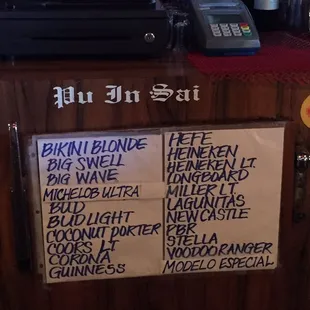 Pu In Sai
BIKINI BLONDE
BIG SWELL
BIG WAVE
MICHELOB ULTRA
BUD
BUD LIGHT
COCONUT PORTER
COORS LT
CORONA
GUINNESS
HEFE
HEINEKEN
HEINEKEN LT.
LONGBOARD
MILLER LT.
LAGUNITAS
NEWCASTLE
PBR
STELLA
VOODOO RANGER
MODELO ESPECIAL